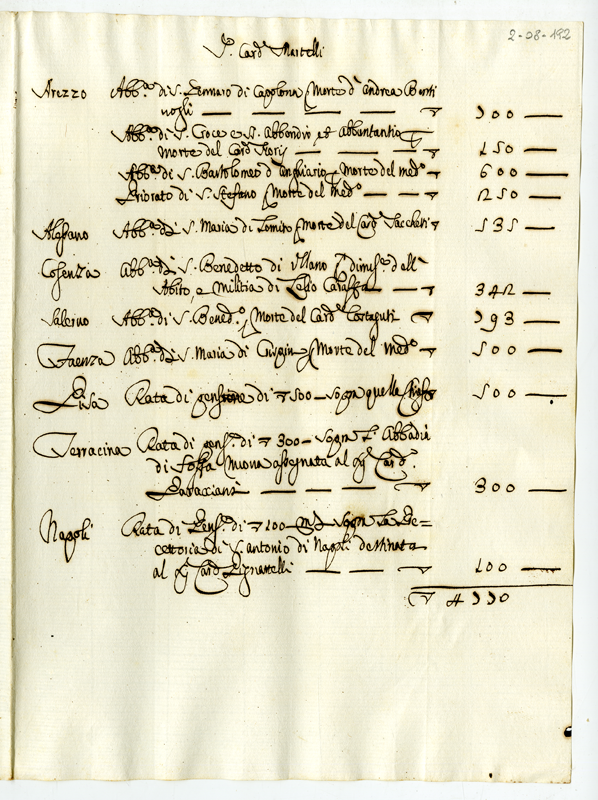 2-08-192
Sr. Card. Martelli
Arezzo Abb.a di S. Gennaro di Capolona Morte d'Andrea Bonti
vogli 900
Abb.a di S. Croce e S. Abbondio, et Abbuntantio
Morte del Card. 150
Abb.a di S. Bartolomeo d'Anghiario Morte del med.o 600
Priorato di S. Stefano Morte del med.o 250
Alessano Abb.a di S. Maria di Morte del Card. Sacchetti 535
Cosenza Abb.a di S. Benedetto di Ullano dimiss.e dell'
Abito, e Militia di Caraffa 342
Salerno Abb.a di S. Bened.o Morte del Card. Costaguti 393
Faenza Abb.a di S. Maria di Morte del med.o 500
Pisa Rata di pensione di 500 sopra quella Chiesa 500
Terracina Rata di pens.e di 300 sopra l'Abbadia
di Fossa Nuova assegnata al Sig. Card.
300
Napoli Rata di Pens.e di 100 sopra la Pre=
cettoria di S. Antonio di Napoli destinata
al Sig. Card. Pignattelli 100